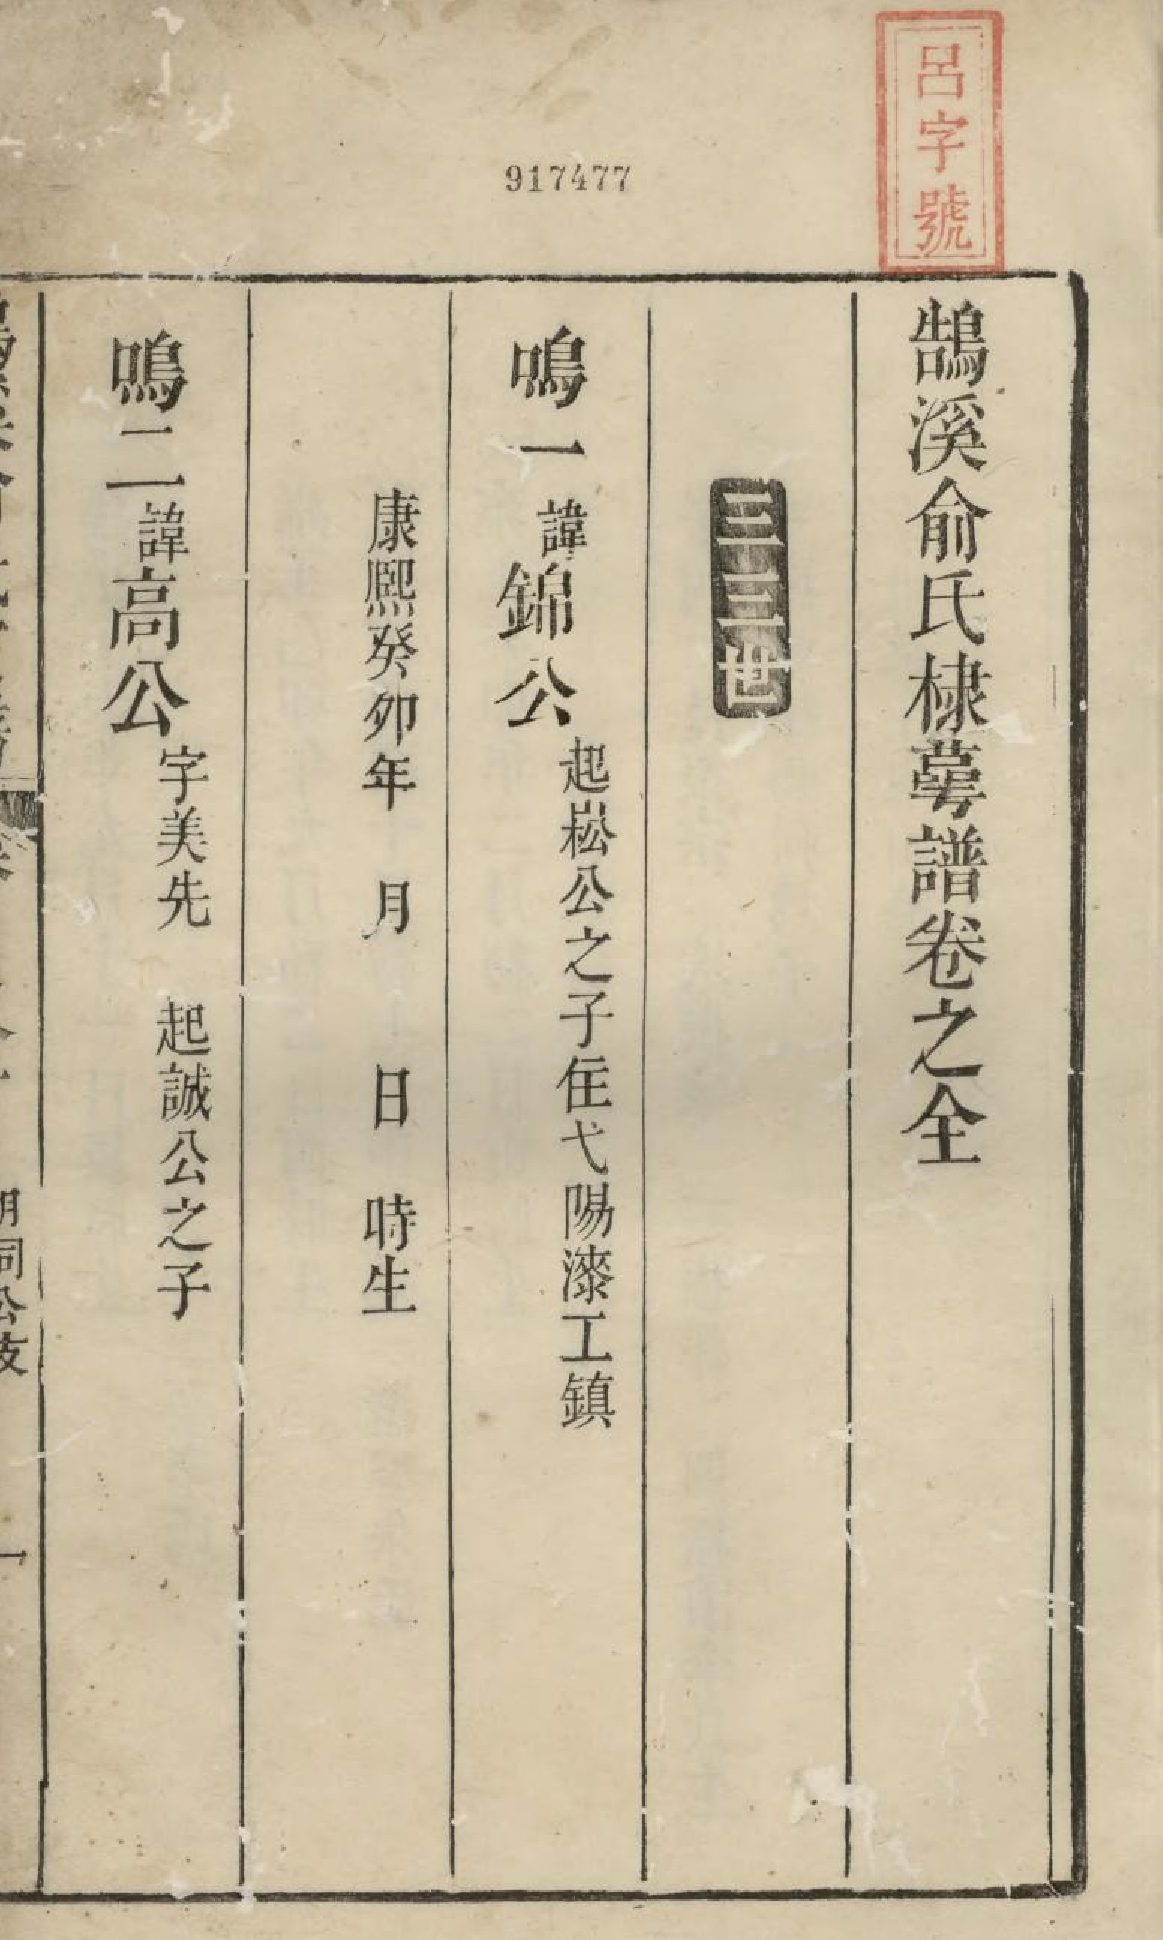 呂字號
917477
鵠溪俞氏棣萼譜卷之全
三三世
鳴一諱錦公起崧公之子住弋陽漆工鎮
康熙癸卯年 月 日 時生
鳴二諱高公字美先 起誠公之子